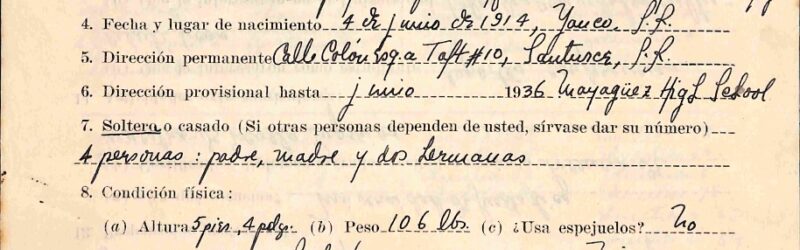 4. Fecha y lugar de nacimiento 4 de junio de 1914, Yauco, P.R.
5. Dirección permanente Calle Colón esq. a Taft #10, Santurce, P.R.
6. Dirección provisional hasta junio 1936 Mayagüez High School
7. Soltera o casado (Si otras personas dependen de usted, sírvase dar su número)
4 personas: padre, madre y dos hermanas
8. Condición física:
(a) Altura 5 pies, 4 pulgs. (b) Peso 106 lbs. (c) ¿Usa espejuelos? No